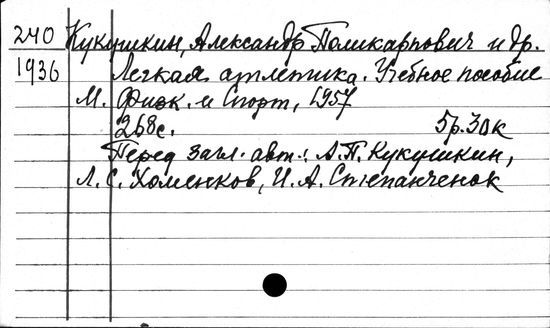 240 Кукушкин, Александр Поликарпович и др.
1936 Легкая атлетика. Учебное пособие
М. Физк. и Спорт, 1957
268с. 5р.30к
Перед загл. авт.: А.П. Кукушкин,
Л. С. Хоменков, И. А. Степанченок